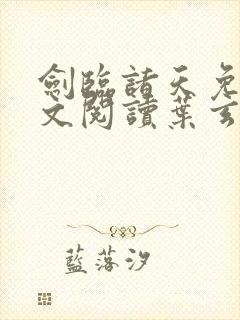 劍臨諸天免
文閱讀葉玄
藍落汐